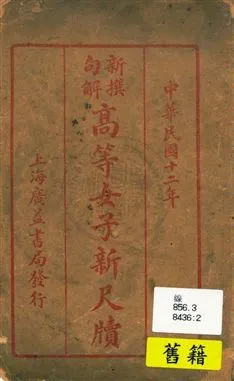 中華民國十二年
新撰
句解
高等女子新尺牘
上海廣益書局發行
線
856.3
8436:2
舊籍